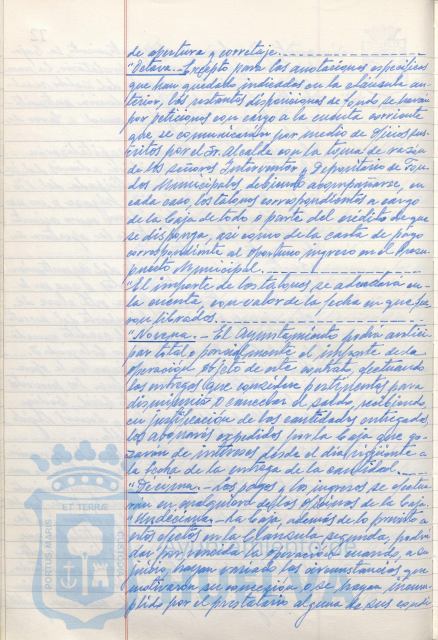 de apertura y corretaje.
"Octava.- Excepto para las anotaciones específicas
que han quedado indicadas en la cláusula an-
terior, las restantes disposiciones de fondo se harán
por peticiones con cargo a la cuenta corriente
que se comunicarán por medio de Oficios sus-
critos por el Sr. Alcalde con la toma de razón
de los señores Interventor y Depositario de Fon-
dos Municipales, debiendo acompañarse, en
cada caso, los talones correspondientes a cargo
de la Caja de todo o parte del crédito de que
se disponga, así como de la carta de pago
correspondiente al oportuno ingreso en el Presu-
puesto Municipal.
"El importe de los talones se adeudará en
la cuenta, con valor de la fecha en que sea
con librados.
"Novena.- El Ayuntamiento podrá antici-
par total o parcialmente el importe de la
operación objeto de este contrato, efectuando
las entregas que considere pertinentes para
disminuir o cancelar el saldo, recibiendo
en justificación de las cantidades entregadas
los abonarés expedidos por la Caja que go-
zarán de intereses desde el día siguiente a
la fecha de la entrega de la cantidad.
"Décima.- Los pagos y los ingresos se efectua-
rán en cualquiera de las oficinas de la Caja.
"Undécima.- La Caja, además de lo previsto a
estos efectos en la Cláusula segunda, podrá
dar por vencida la operación cuando, a su
juicio, hayan variado las circunstancias que
motivaron su concesión o se hayan incum-
plido por el prestatario alguna de sus condi-
PORTUS MARIS
ET TERRÆ
CUSTODIA